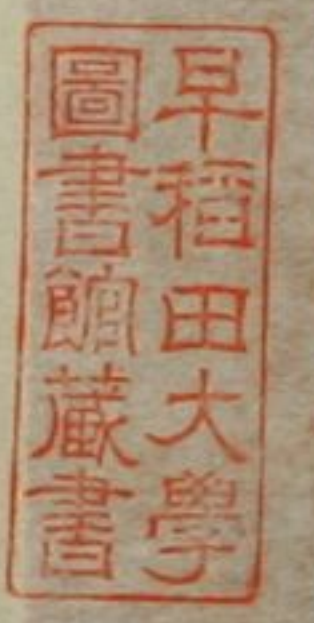 早稻田大學
圖書館藏書